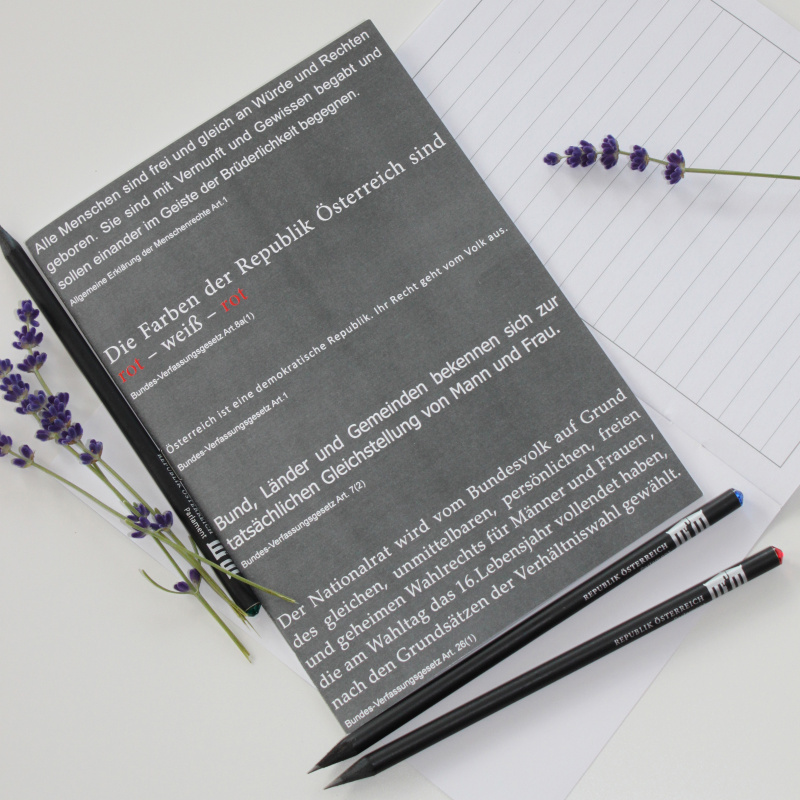 Alle Menschen sind frei und gleich an Würde und Rechten
geboren. Sie sind mit Vernunft und Gewissen begabt und
sollen einander im Geiste der Brüderlichkeit begegnen.
Allgemeine Erklärung der Menschenrechte Art.1
Die Farben der Republik Österreich sind
rot – weiß – rot
Bundes-Verfassungsgesetz Art.8a(1)
Österreich ist eine demokratische Republik. Ihr Recht geht vom Volk aus.
Bundes-Verfassungsgesetz Art.1
Bund, Länder und Gemeinden bekennen sich zur
tatsächlichen Gleichstellung von Mann und Frau.
Bundes-Verfassungsgesetz Art. 7(2)
Der Nationalrat wird vom Bundesvolk auf Grund
des gleichen, unmittelbaren, persönlichen, freien
und geheimen Wahlrechts für Männer und Frauen ,
die am Wahltag das 16.Lebensjahr vollendet haben,
nach den Grundsätzen der Verhältniswahl gewählt.
Bundes-Verfassungsgesetz Art. 26(1)
REPUBLIK ÖSTERREICH
Parlament
REPUBLIK ÖSTERREICH
REPUBLIK ÖSTERREICH